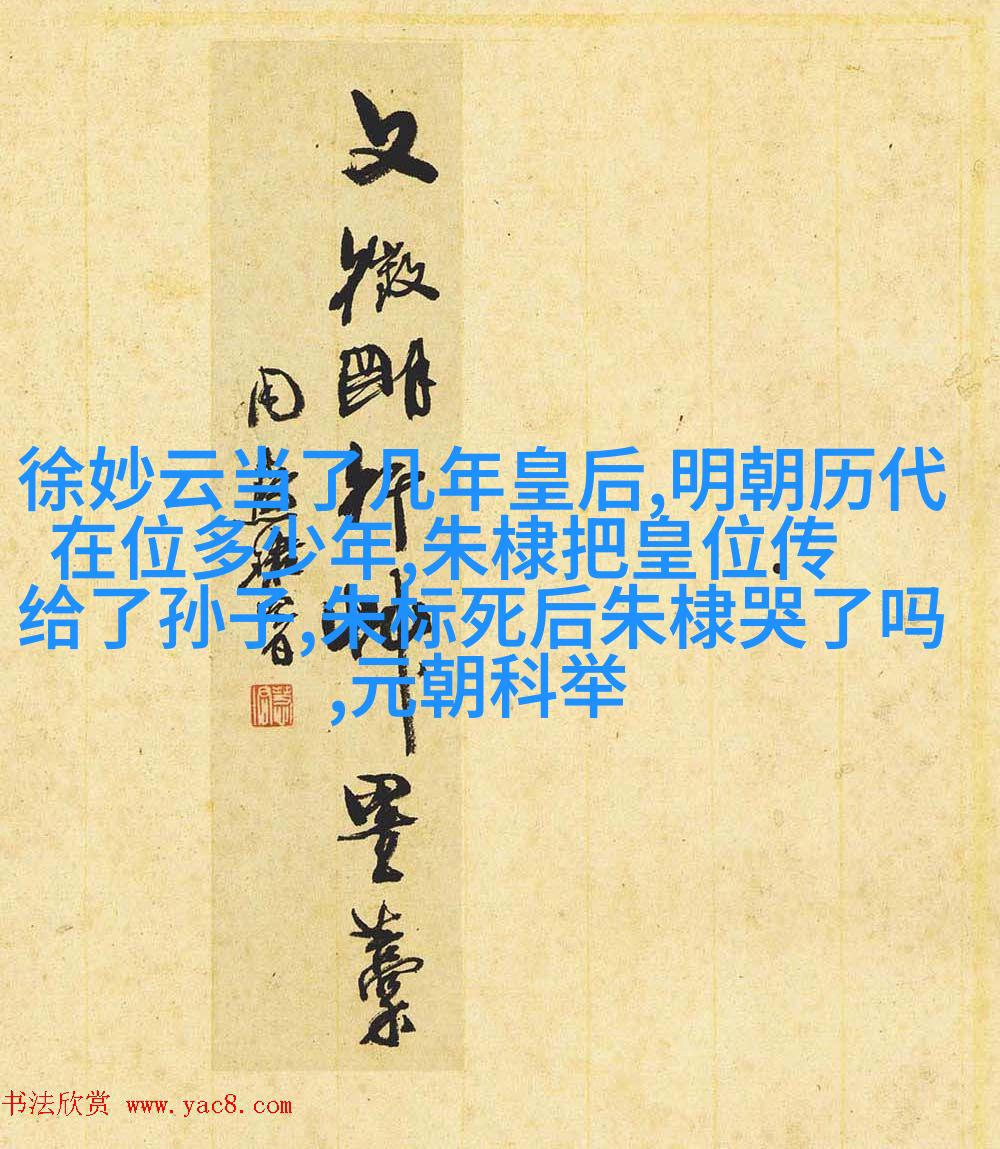 文徵明行押墨藁
徐妙云当了几年皇后,明朝历代
在位多少年,朱棣把皇位传
给了孙子,朱标死后朱棣哭了吗
,元朝科举
书法欣赏 www.yac8.com